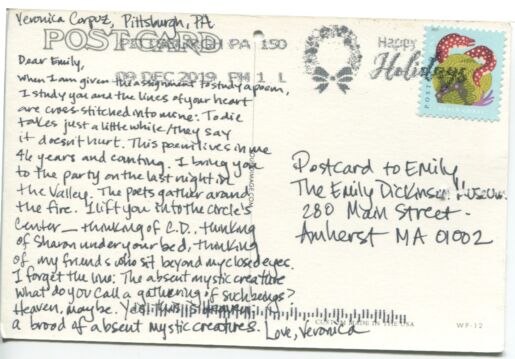 Veronica Corpuz, Pittsburgh, PA
POSTCARD
PA 150
09 DEC 2019 PM 1 L
Happy
Holidays
Dear Emily,
When I am given the assignment to study a poem,
I study you and the lines of your heart
are cross-stitched into mine: To die
takes just a little while / they say
it doesn't hurt. This poem lives in me
46 years and counting. I bring you
to the party on the last night in
the Valley. The poets gather around
the fire. I lift you into the circle's
center — thinking of C.D., thinking
of Sharon under your bed, thinking
of my friends who sit beyond my closed eyes.
I forget the line: The absent mystic creature
What do you call a gathering of such beings?
Heaven, maybe.
a brood of absent mystic creatures. Love, Veronica
Postcard to Emily
The Emily Dickinson Museum
280 Main Street.
Amherst MA 01002
MADE IN THE USA
WP-12